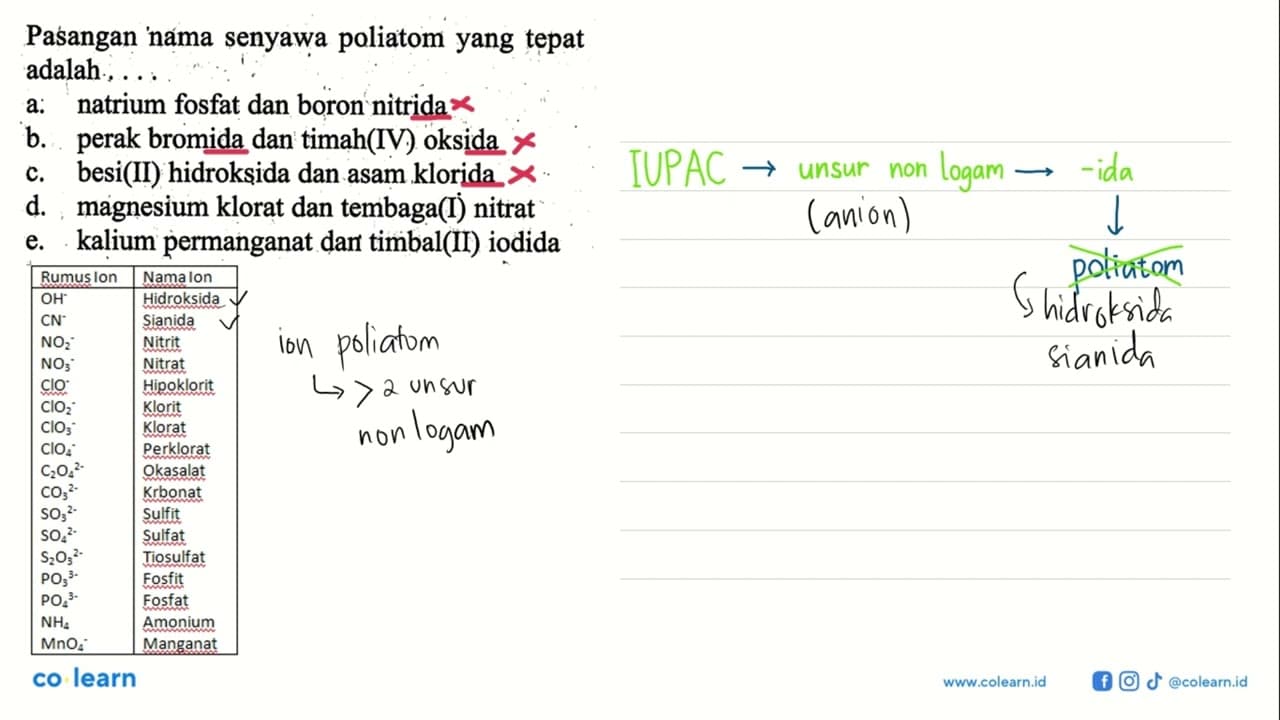 Pasangan nama senyawa poliatom yang tepat
adalah . . . .
a. natrium fosfat dan boron nitrida ×
b. perak bromida dan timah(IV) oksida ×
c. besi(II) hidroksida dan asam klorida ×
d. magnesium klorat dan tembaga(I) nitrat
e. kalium permanganat dan timbal(II) iodida
Rumus Ion Nama Ion
OH⁻ Hidroksida ✓
CN⁻ Sianida ✓
NO₂⁻ Nitrit
NO₃⁻ Nitrat
ClO⁻ Hipoklorit
ClO₂⁻ Klorit
ClO₃⁻ Klorat
ClO₄⁻ Perklorat
C₂O₄²⁻ Okasalat
CO₃²⁻ Krbonat
SO₃²⁻ Sulfit
SO₄²⁻ Sulfat
S₂O₃²⁻ Tiosulfat
PO₃³⁻ Fosfit
PO₄³⁻ Fosfat
NH₄ Amonium
MnO₄⁻ Manganat
ion poliatom
↳ > 2 unsur
non logam
IUPAC → unsur non logam → -ida
(anion) ↓
poliatom
↳ hidroksida
sianida
co learn
www.colearn.id @colearn.id